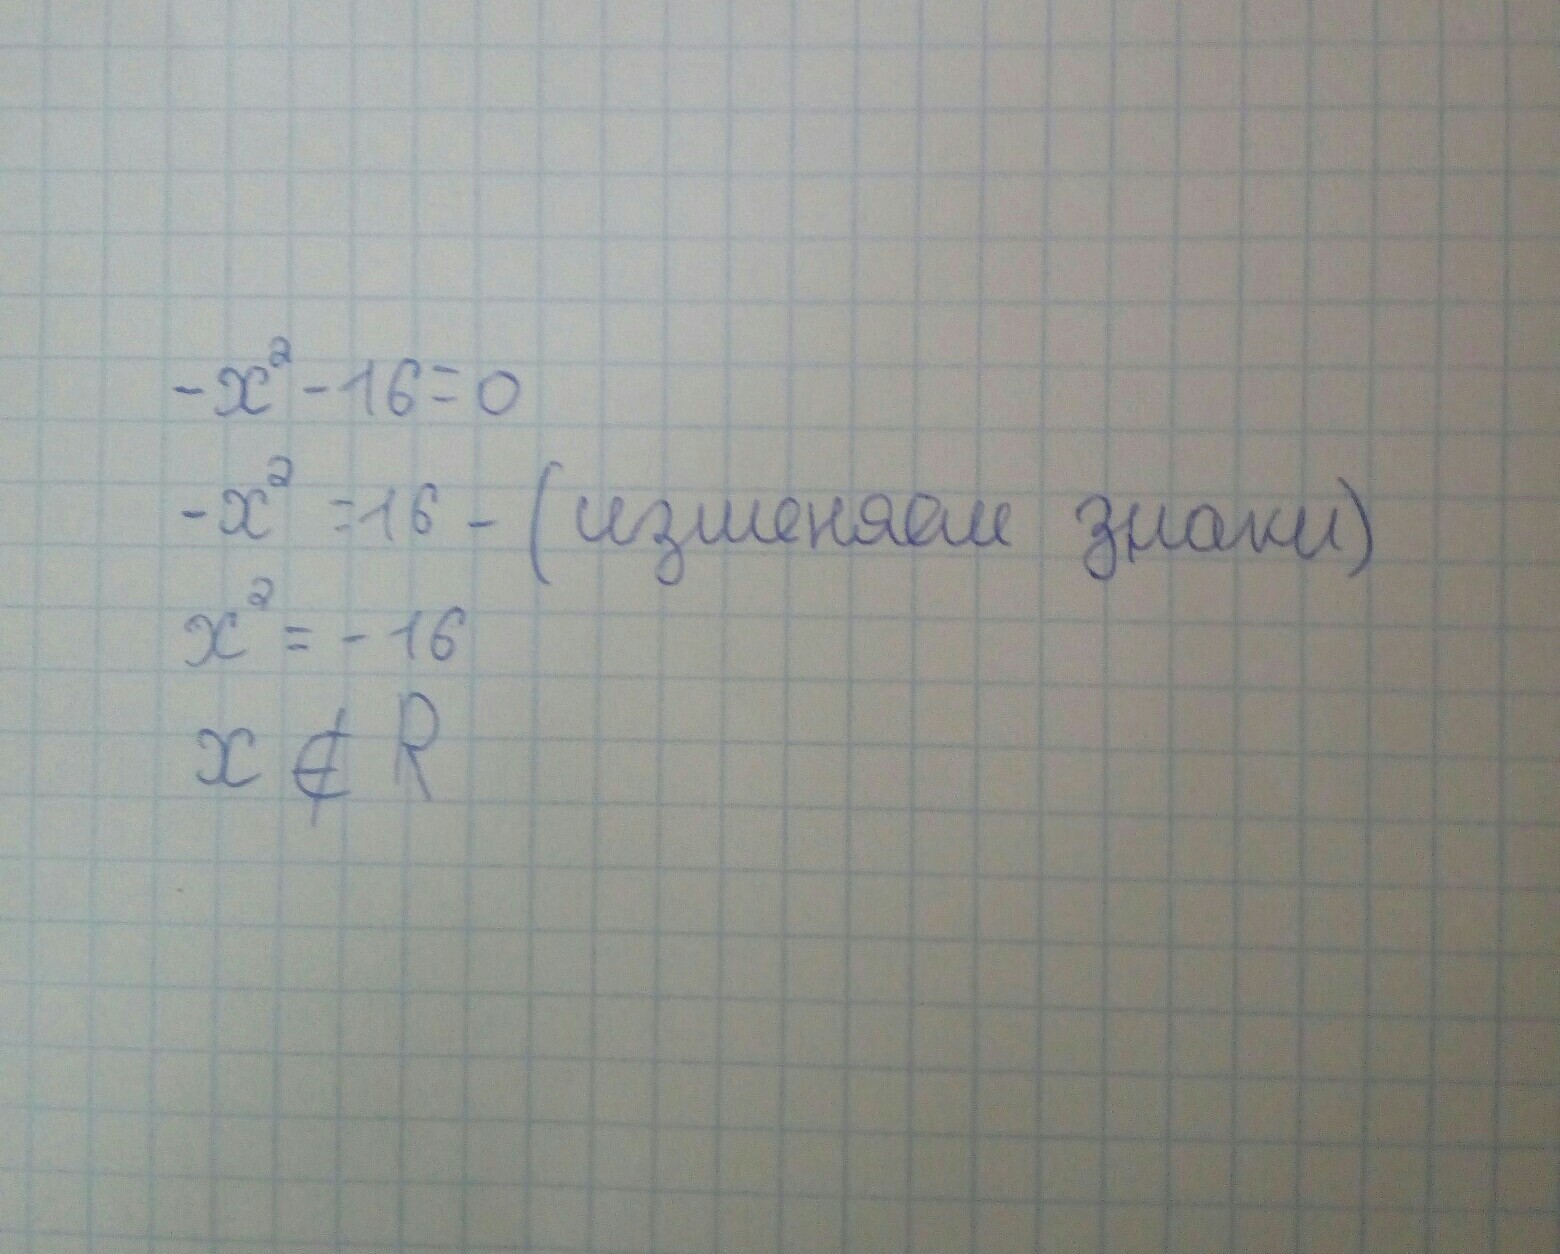 -x² - 16 = 0
-x² = 16 - (изменяем знаки)
x² = - 16
x ∉ R